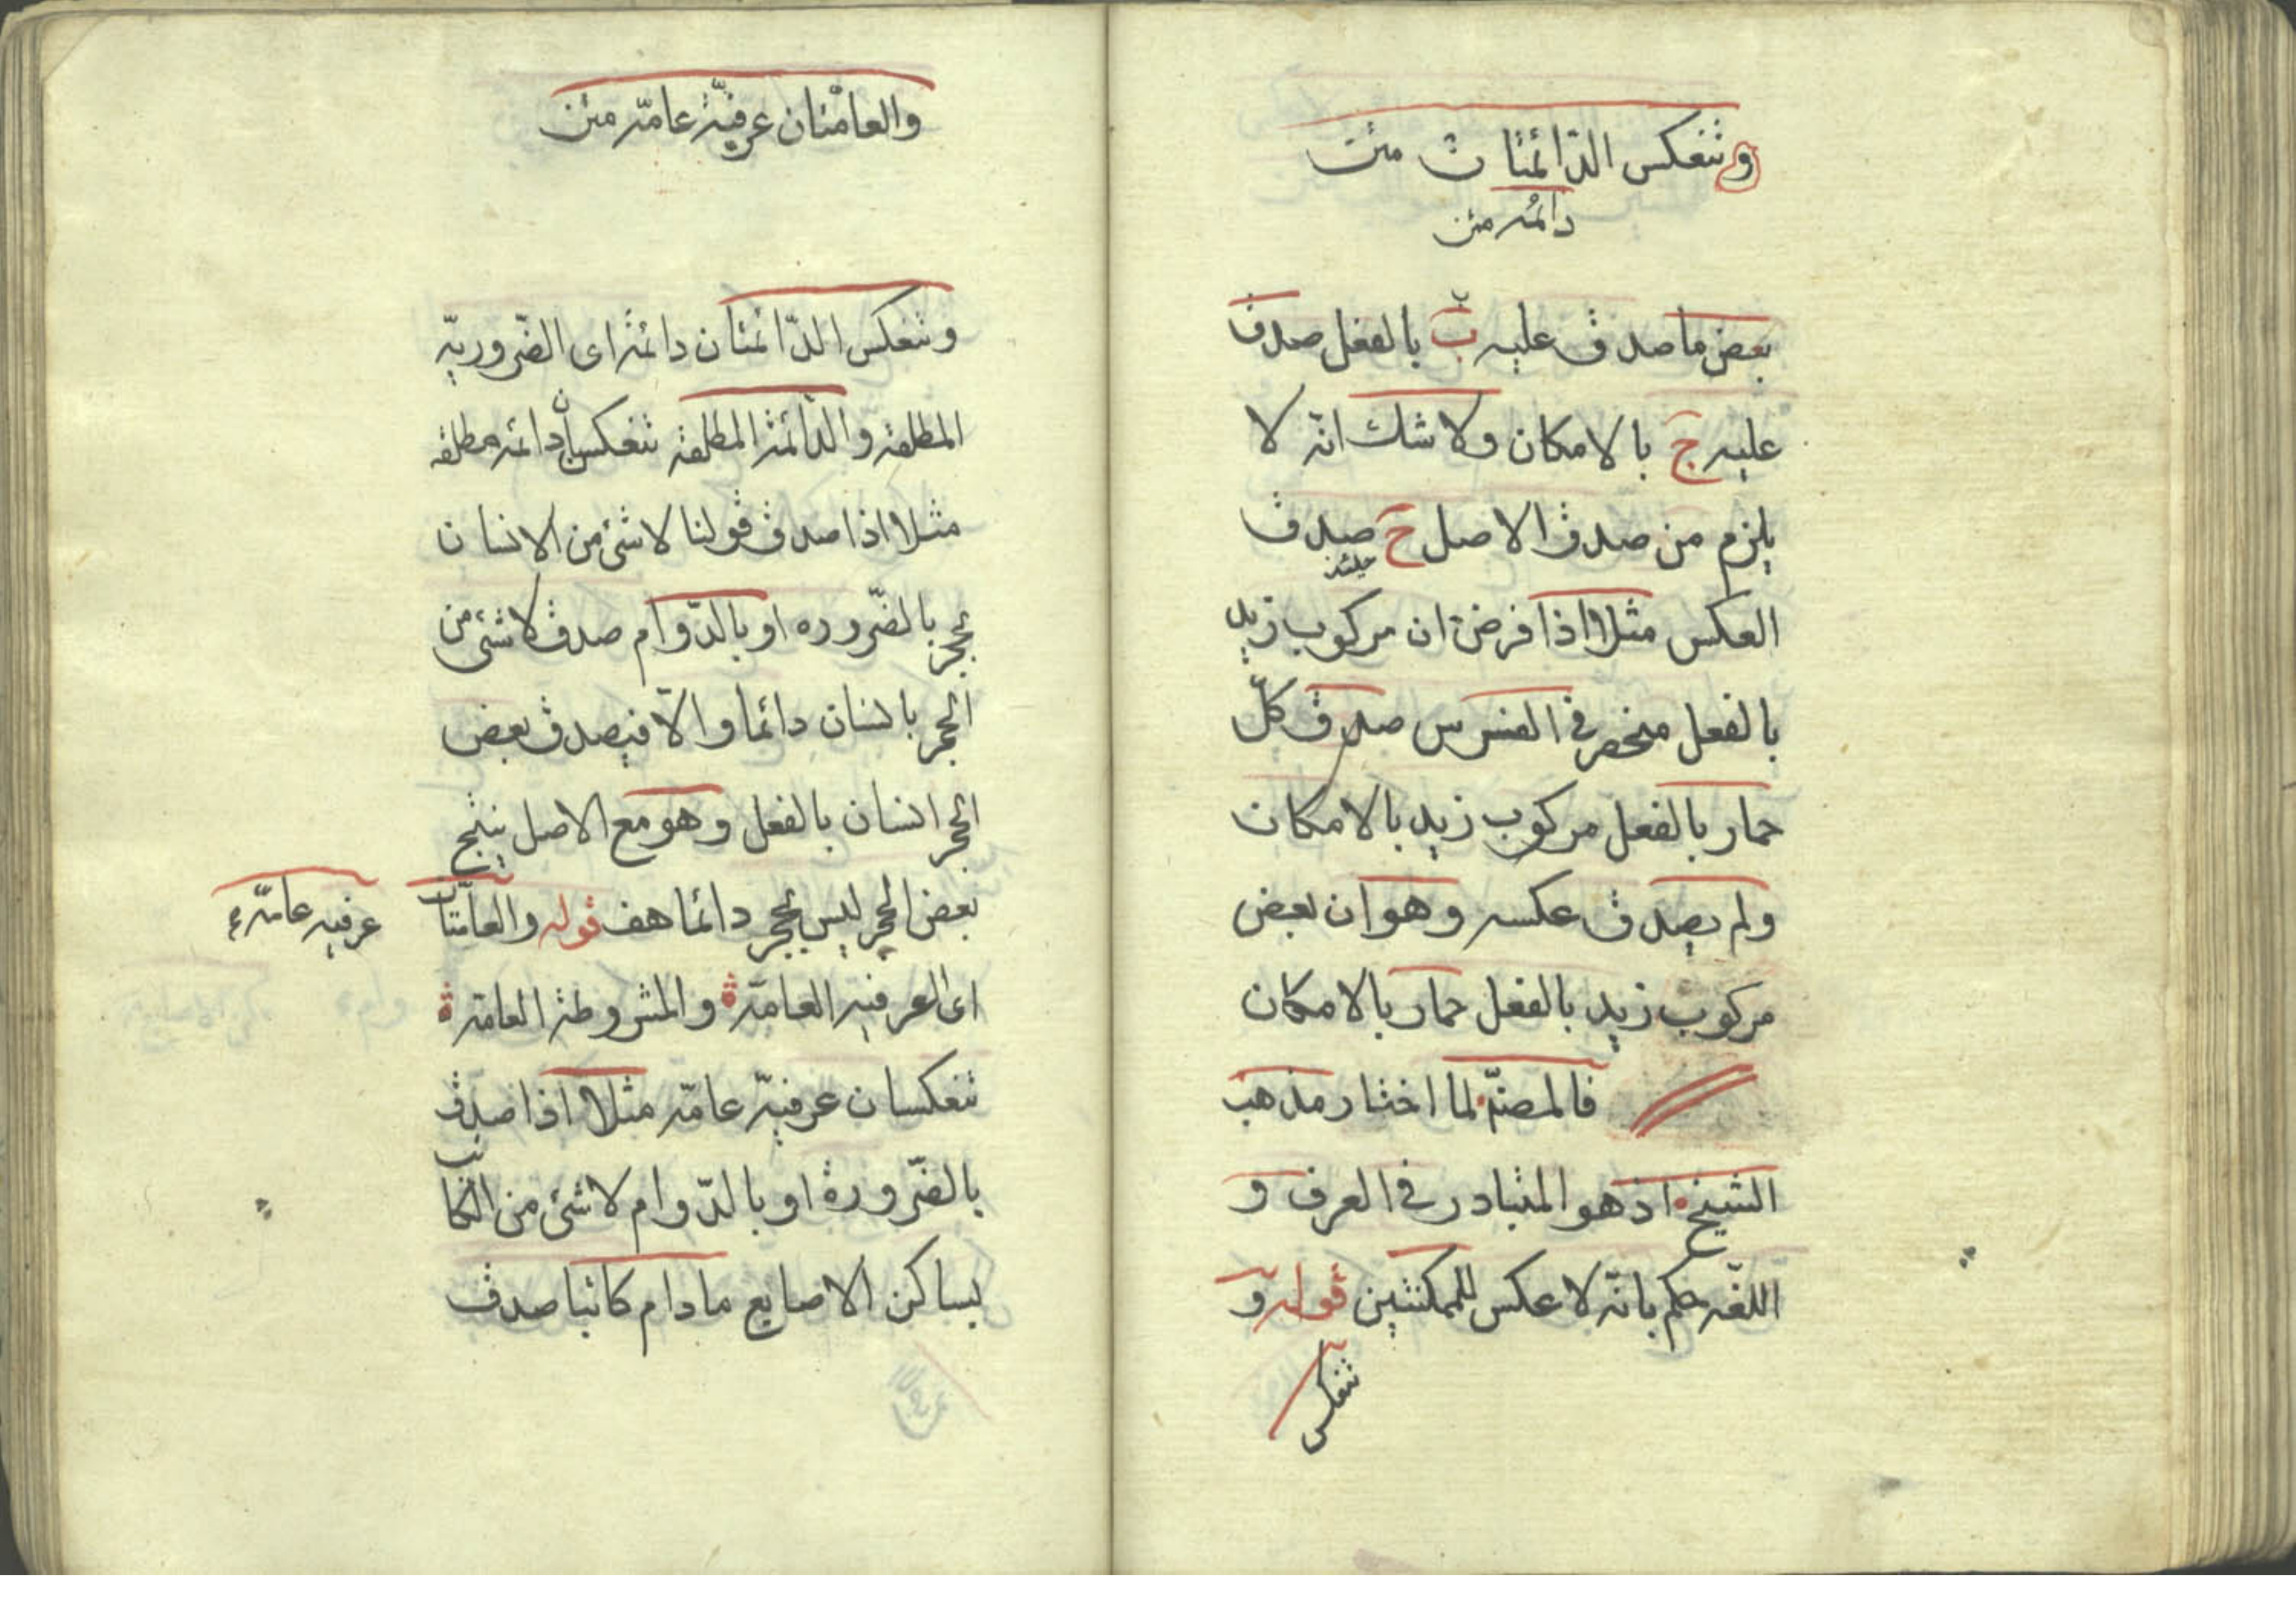 و تنعكس الدّائمتان متن
دائمه متن
بعض ما صدق عليه بَ بالفعل صدق
عليه جَ بالامكان ولا شك انّه لا
يلزم من صدق الاصل حَ صدق
حينئذ
العكس مثلا اذا فرض ان مركوب زيد
بالفعل منحصر فى الفرس صدق كلّ
حمار بالفعل مركوب زيد بالامكان
ولم يصدق عكسه وهو ان بعض
مركوب زيد بالفعل حمار بالامكان
فالمصنّف لما اختار مذهب
الشيخ اذ هو المتبادر فى العرف و
اللغه حكم بانّه لا عكس للممكنتين قوله و
تنعكس
والعامتان عرفيّة عامّه متن
وتنعكس الدّائمتان دائمة اى الضّروريّه
المطلقه والدّائمة المطلقه تنعكسان دائمه مطلقه
مثلا اذا صدق قولنا لا شئ من الانسان
بحجر بالضّروره او بالدّوام صدق لا شئ من
الحجر بانسان دائما والّا فيصدق بعض
الحجر انسان بالفعل وهو مع الاصل ينتج
بعض الحجر ليس بحجر دائما هف قوله والعامّتان
عرفيه عامّه
اى العرفيه العامّة والمشروطة العامّة
تنعكسان عرفيّه عامّه مثلا اذا صدق
بالضّرورة او بالدّوام لا شئ من الكاتب
بساكن الاصابع مادام كاتبا صدق